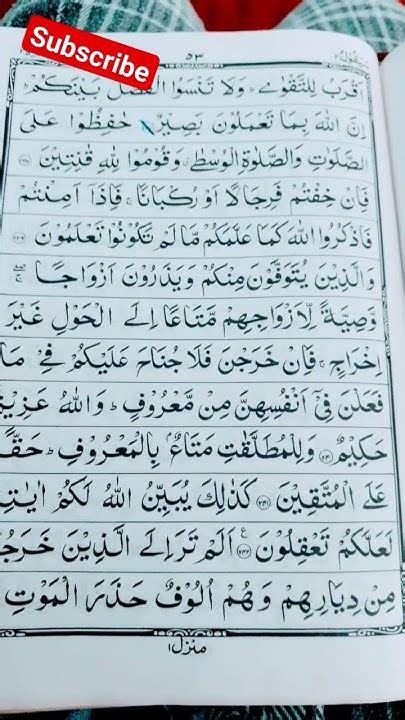 Subscribe
٥٣
اَقْرَبُ لِلتَّقْوٰى ؕ وَلَا تَنْسَوُا الْفَضْلَ بَيْنَكُمْ ؕ
اِنَّ اللّٰهَ بِمَا تَعْمَلُوْنَ بَصِيْرٌ حٰفِظُوْا عَلَى
الصَّلَوٰتِ وَالصَّلٰوةِ الْوُسْطٰى ۗ وَقُوْمُوْا لِلّٰهِ قٰنِتِيْنَ ۝٢٣٨
فَاِنْ خِفْتُمْ فَرِجَالًا اَوْ رُكْبَانًا ۚ فَاِذَاۤ اَمِنْتُمْ
فَاذْكُرُوا اللّٰهَ كَمَا عَلَّمَكُمْ مَّا لَمْ تَكُوْنُوْا تَعْلَمُوْنَ ۝٢٣٩
وَالَّذِيْنَ يُتَوَفَّوْنَ مِنْكُمْ وَيَذَرُوْنَ اَزْوَاجًا ۖۚ
وَّصِيَّةً لِّاَزْوَاجِهِمْ مَّتَاعًا اِلَى الْحَوْلِ غَيْرَ
اِخْرَاجٍ ۚ فَاِنْ خَرَجْنَ فَلَا جُنَاحَ عَلَيْكُمْ فِيْ مَا
فَعَلْنَ فِيْۤ اَنْفُسِهِنَّ مِنْ مَّعْرُوْفٍ ؕ وَاللّٰهُ عَزِيْزٌ
حَكِيْمٌ ۝٢٤٠ وَلِلْمُطَلَّقٰتِ مَتَاعٌۢ بِالْمَعْرُوْفِ ؕ حَقًّا
عَلَى الْمُتَّقِيْنَ ۝٢٤١ كَذٰلِكَ يُبَيِّنُ اللّٰهُ لَكُمْ اٰيٰتِهٖ
لَعَلَّكُمْ تَعْقِلُوْنَ ۝٢٤٢ اَلَمْ تَرَ اِلَى الَّذِيْنَ خَرَجُوْا
مِنْ دِيَارِهِمْ وَهُمْ اُلُوْفٌ حَذَرَ الْمَوْتِ
منزل١